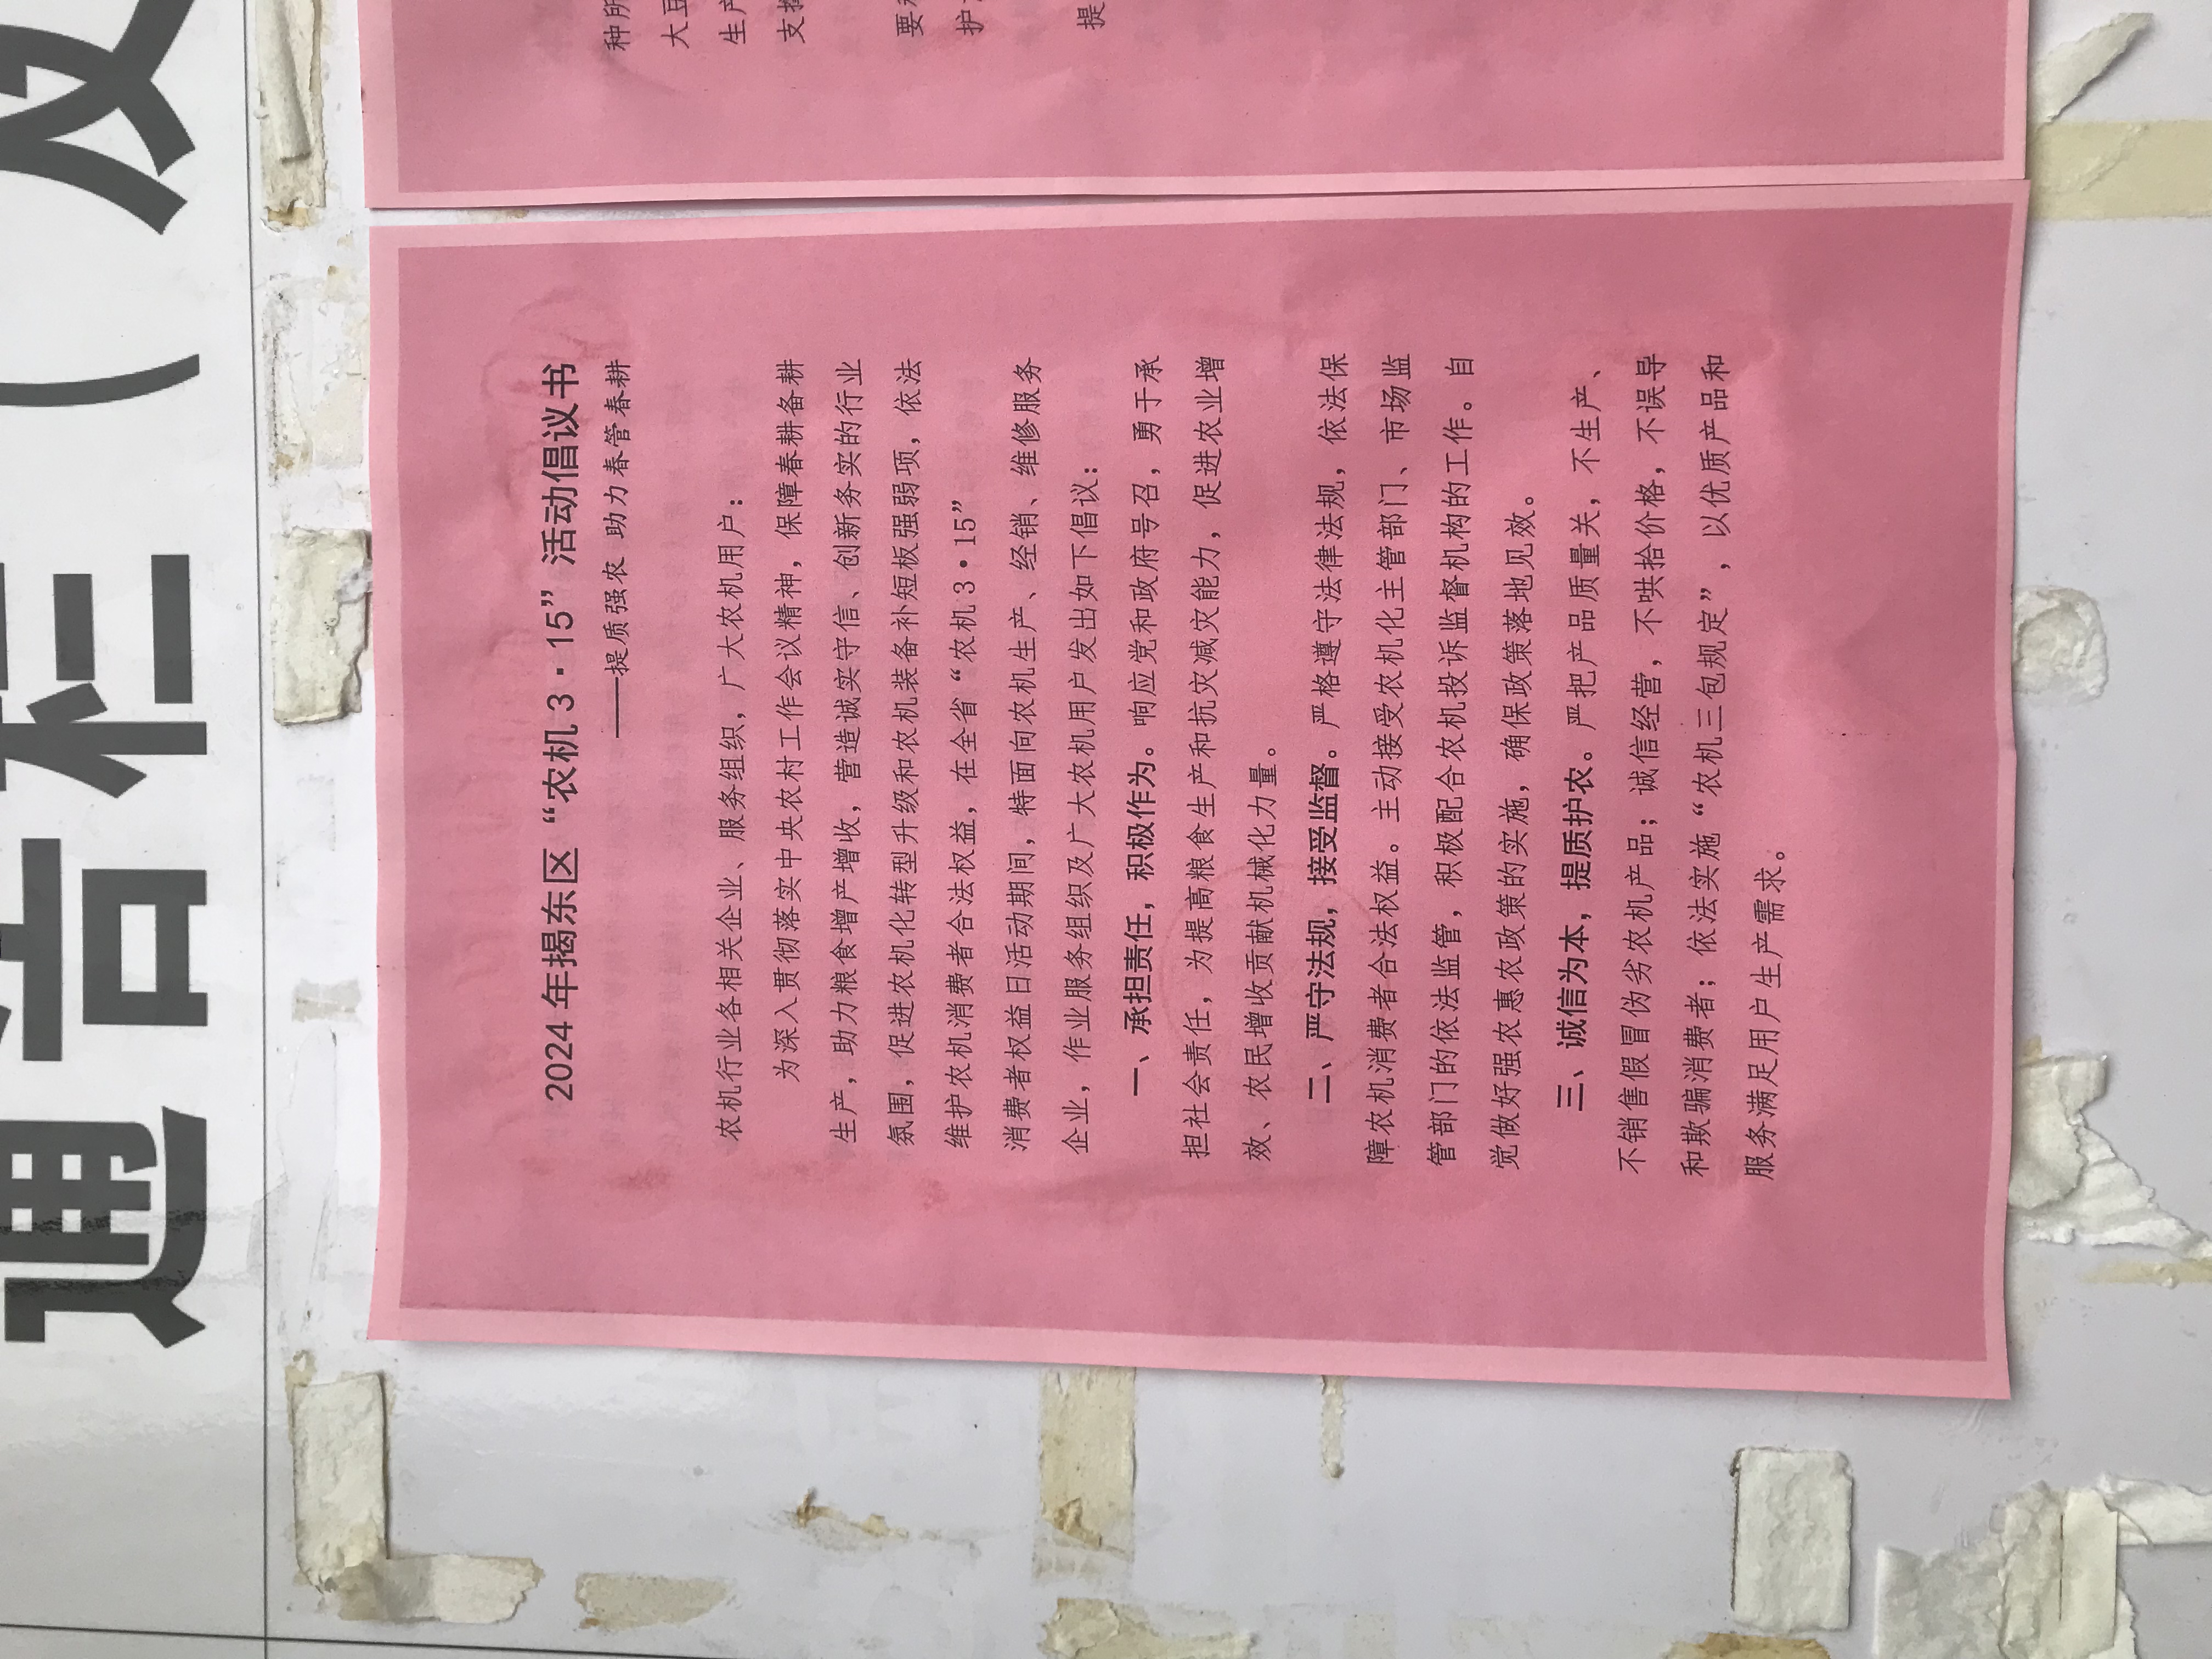 通告栏（
2024年揭东区“农机3·15”活动倡议书
——提质强农 助力春管春耕
农机行业各相关企业、服务组织，广大农机用户：
为深入贯彻落实中央农村工作会议精神，保障春耕备耕
生产，助力粮食增产增收，营造诚实守信、创新务实的行业
氛围，促进农机化转型升级和农机装备补短板强弱项，依法
维护农机消费者合法权益，在全省“农机3·15”
消费者权益日活动期间，特面向农机生产、经销、维修服务
企业，作业服务组织及广大农机用户发出如下倡议：
一、承担责任，积极作为。响应党和政府号召，勇于承
担社会责任，为提高粮食生产和抗灾减灾能力，促进农业增
效、农民增收贡献机械化力量。
二、严守法规，接受监督。严格遵守法律法规，依法保
障农机消费者合法权益。主动接受农机化主管部门、市场监
管部门的依法监管，积极配合农机投诉监督机构的工作。自
觉做好强农惠农政策的实施，确保政策落地见效。
三、诚信为本，提质护农。严把产品质量关，不生产、
不销售假冒伪劣农机产品；诚信经营，不哄抬价格，不误导
和欺骗消费者；依法实施“农机三包规定”，以优质产品和
服务满足用户生产需求。
种所
大豆
生产
支持
要
护
提